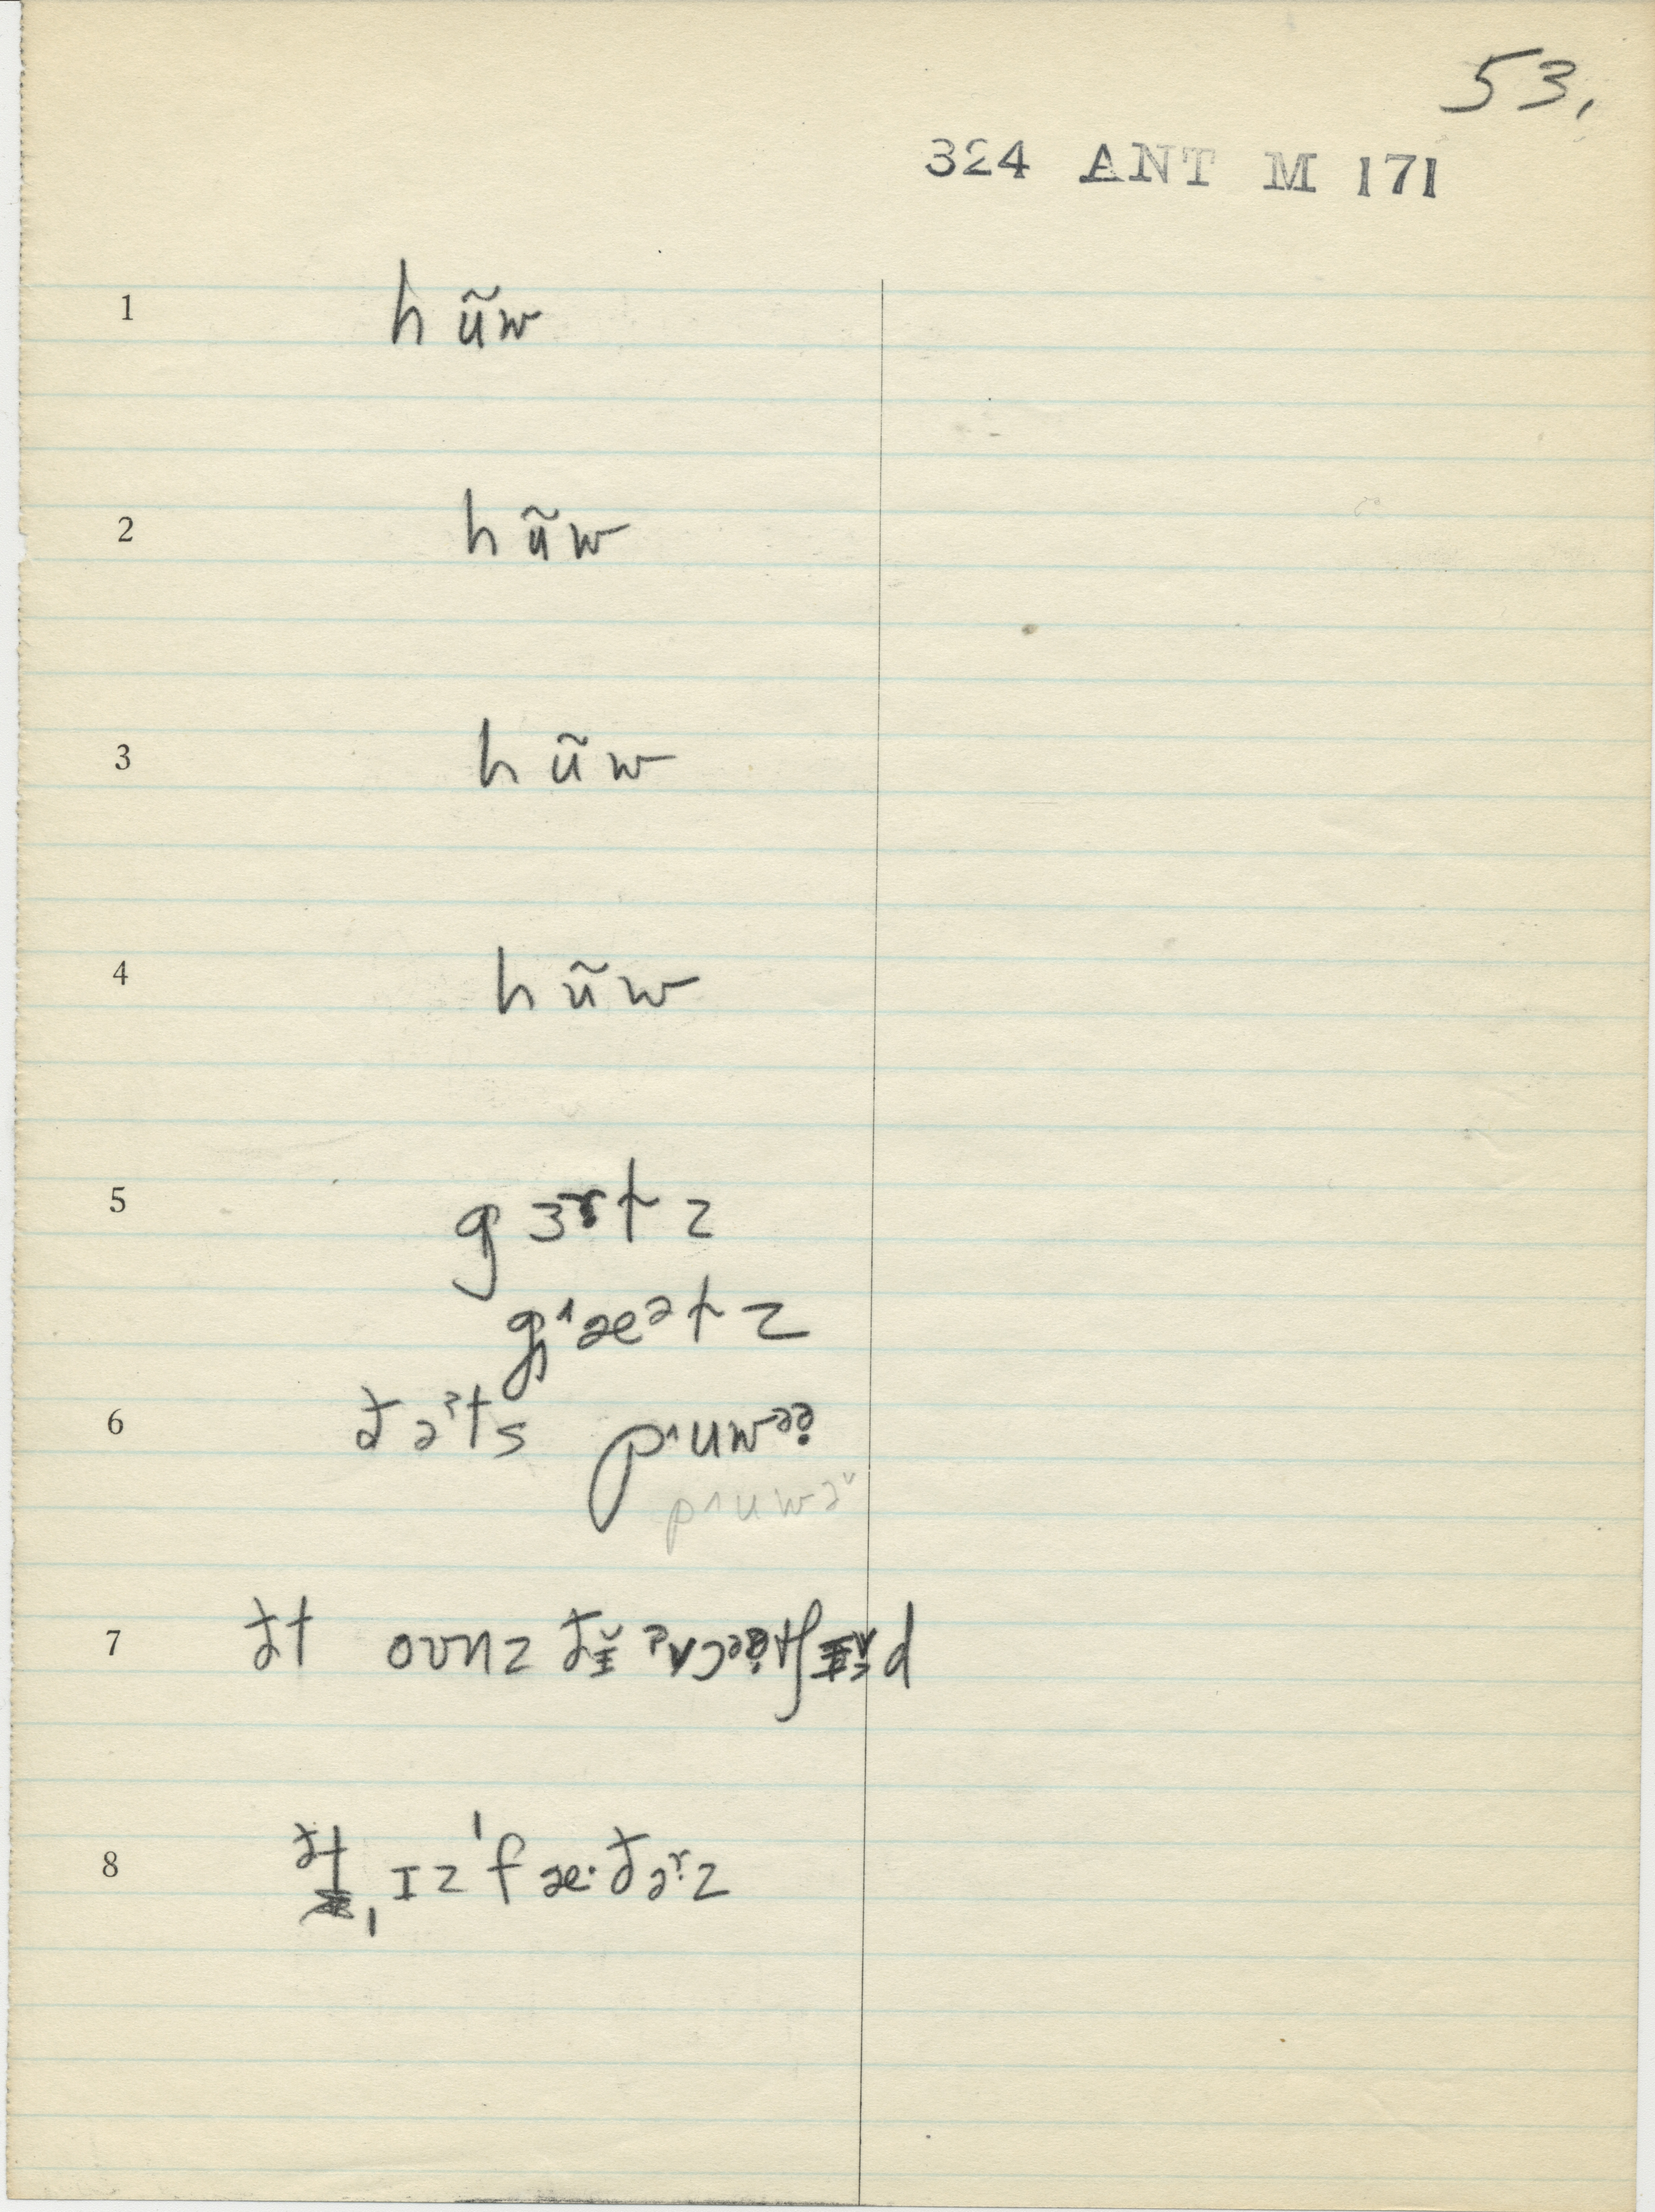 53.
324 ANT M 171
1 hũw
2 hũw
3 hũw
4 hũw
5 gɜʳtz
g˄æᵊtz
6 ðəʳts p˄uwᵊə̣
p˄uwə˅
7 ðt oʊnz
8 ðt ˌɪz ˈfæ·ðəʳz